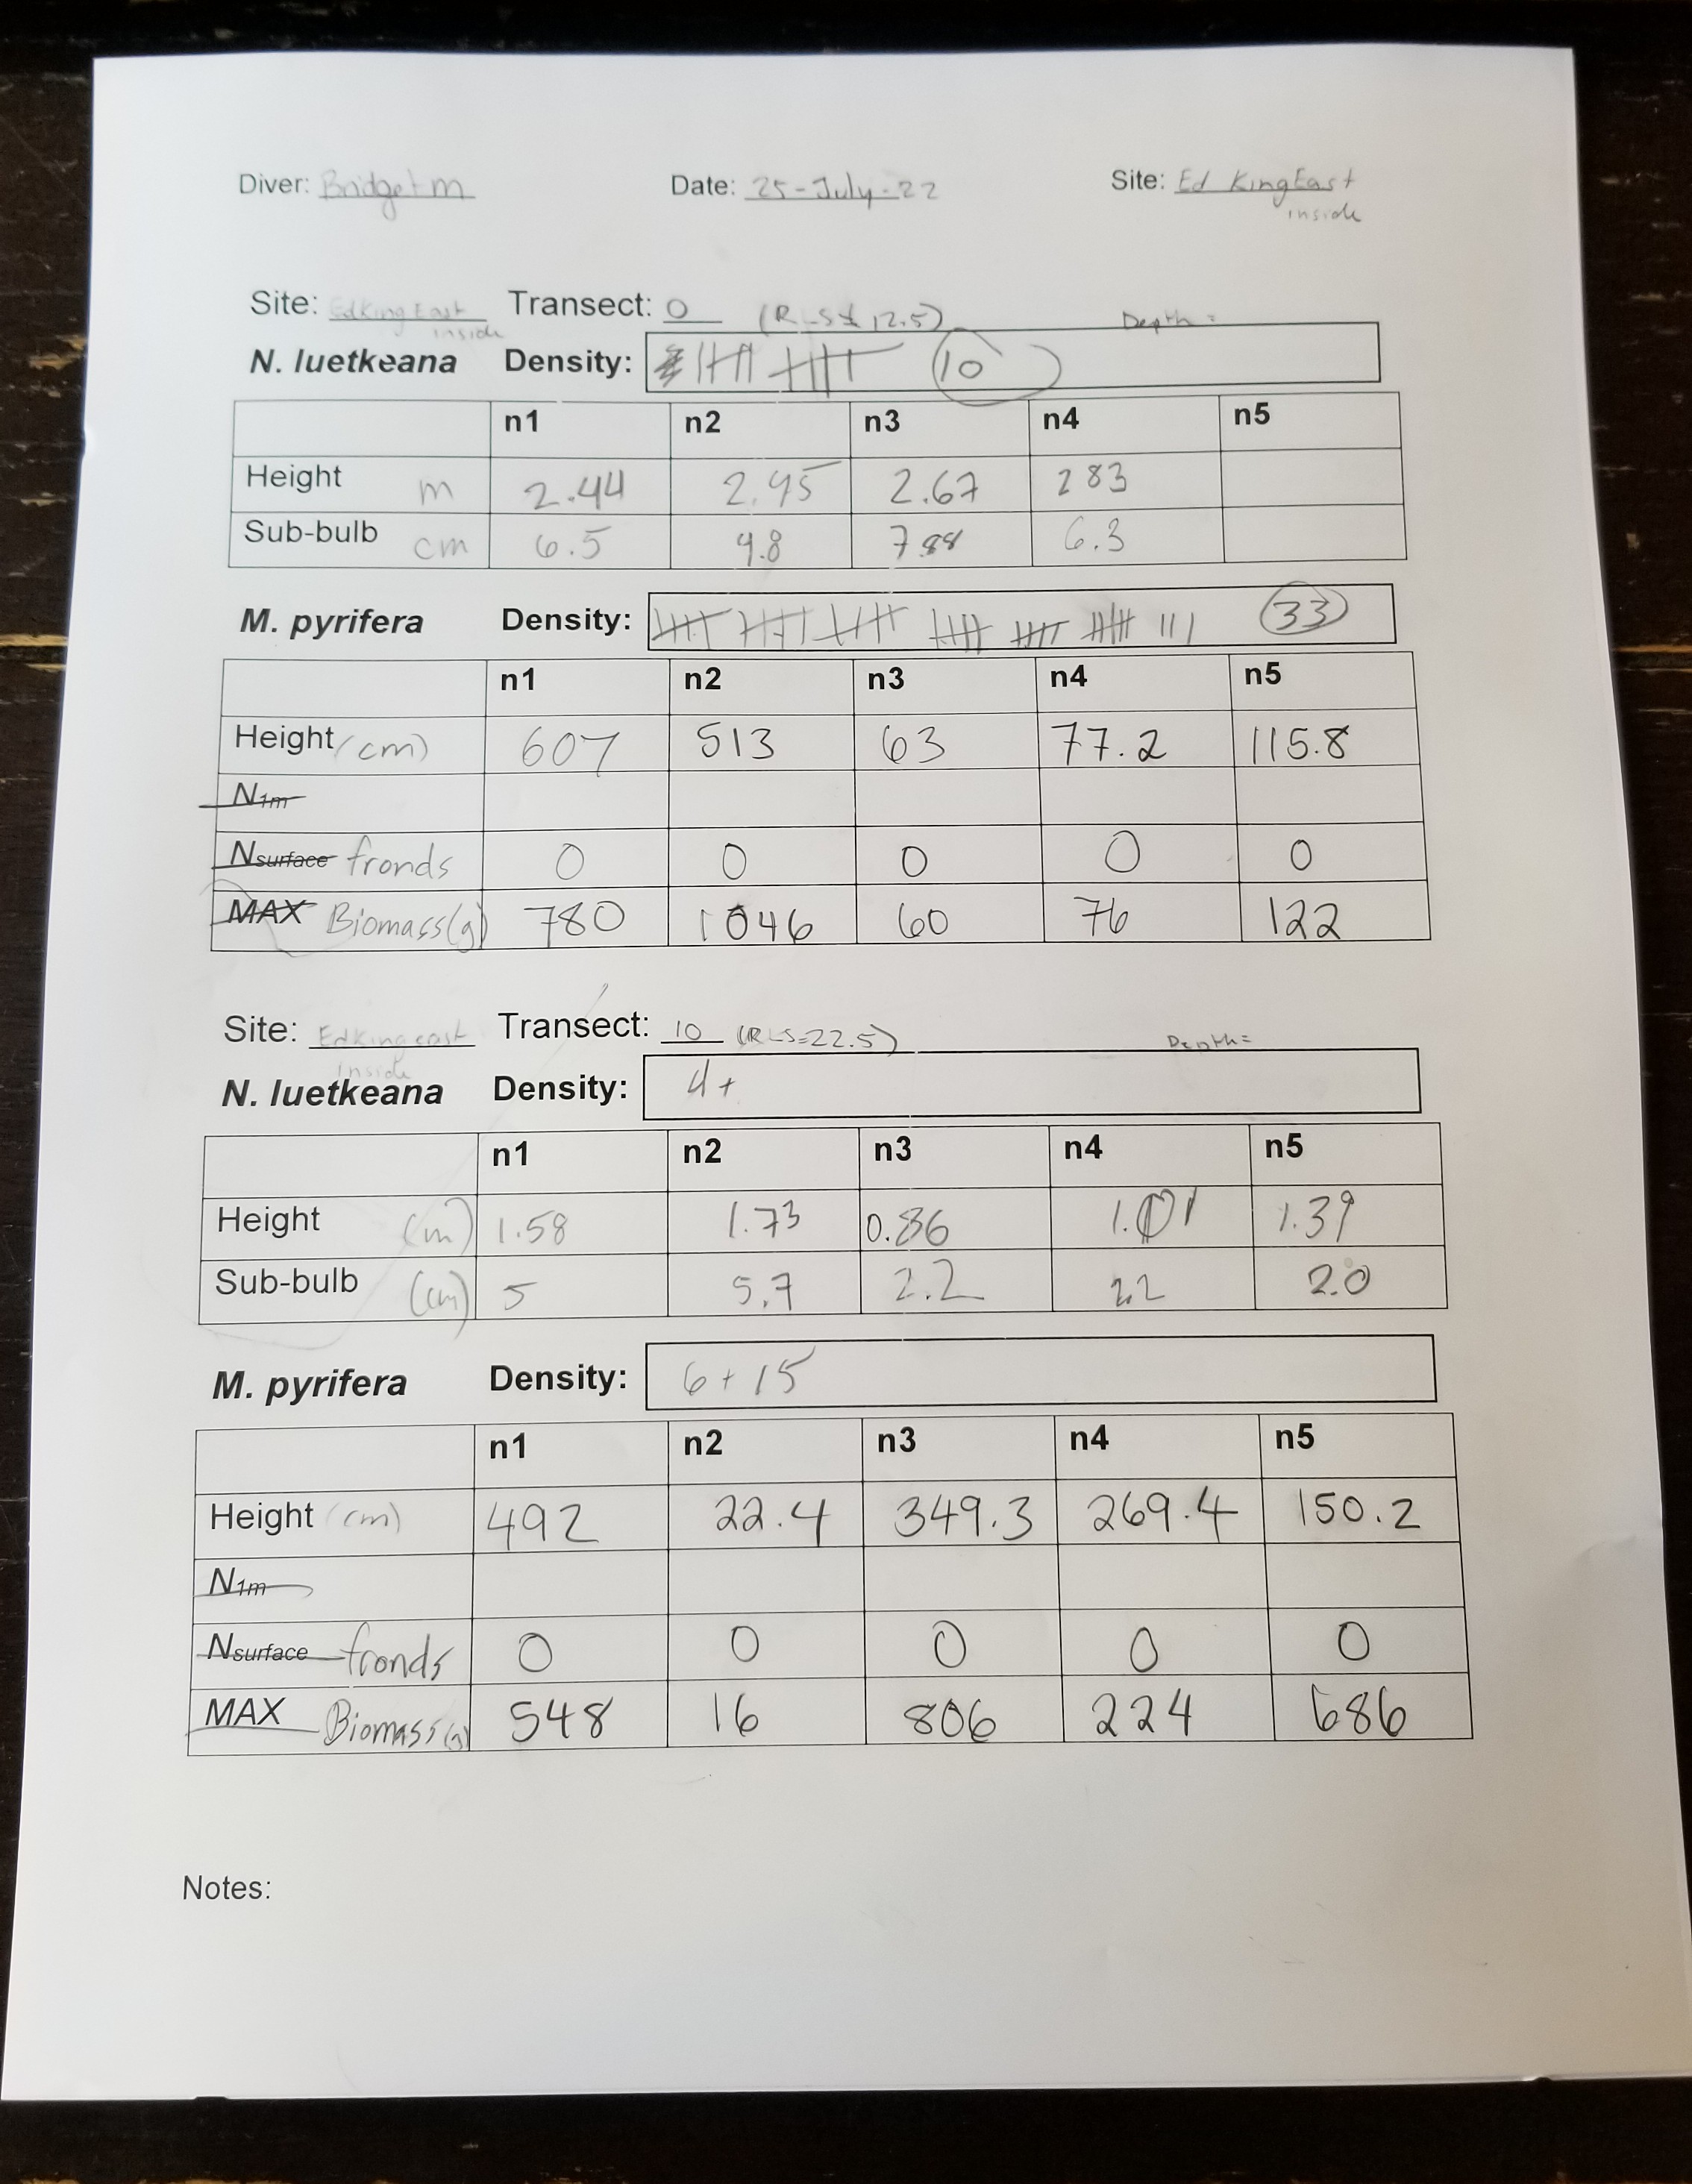 Diver: Bridget m Date: 25-July-22 Site: Ed King East
inside
Site: Ed King East Transect: 0 (RLS 12.5) Depth =
inside
N. luetkeana Density: 10
n1 n2 n3 n4 n5
Height m 2.44 2.95 2.67 283
Sub-bulb cm 6.5 9.8 6.3
M. pyrifera Density: 33
n1 n2 n3 n4 n5
Height (cm) 607 513 63 77.2 115.8
N1m
Nsurface fronds 0 0 0 0 0
MAX Biomass(g) 780 1046 60 76 122
Site: Ed King east Transect: 10 (RLS=22.5) Depth=
inside
N. luetkeana Density: 4+
n1 n2 n3 n4 n5
Height (m) 1.58 1.73 0.86 1.01 1.39
Sub-bulb (cm) 5 5.7 2.2 2.2 2.0
M. pyrifera Density: 6+15
n1 n2 n3 n4 n5
Height (cm) 492 22.4 349.3 269.4 150.2
N1m
Nsurface fronds 0 0 0 0 0
MAX Biomass(g) 548 16 806 224 686
Notes: